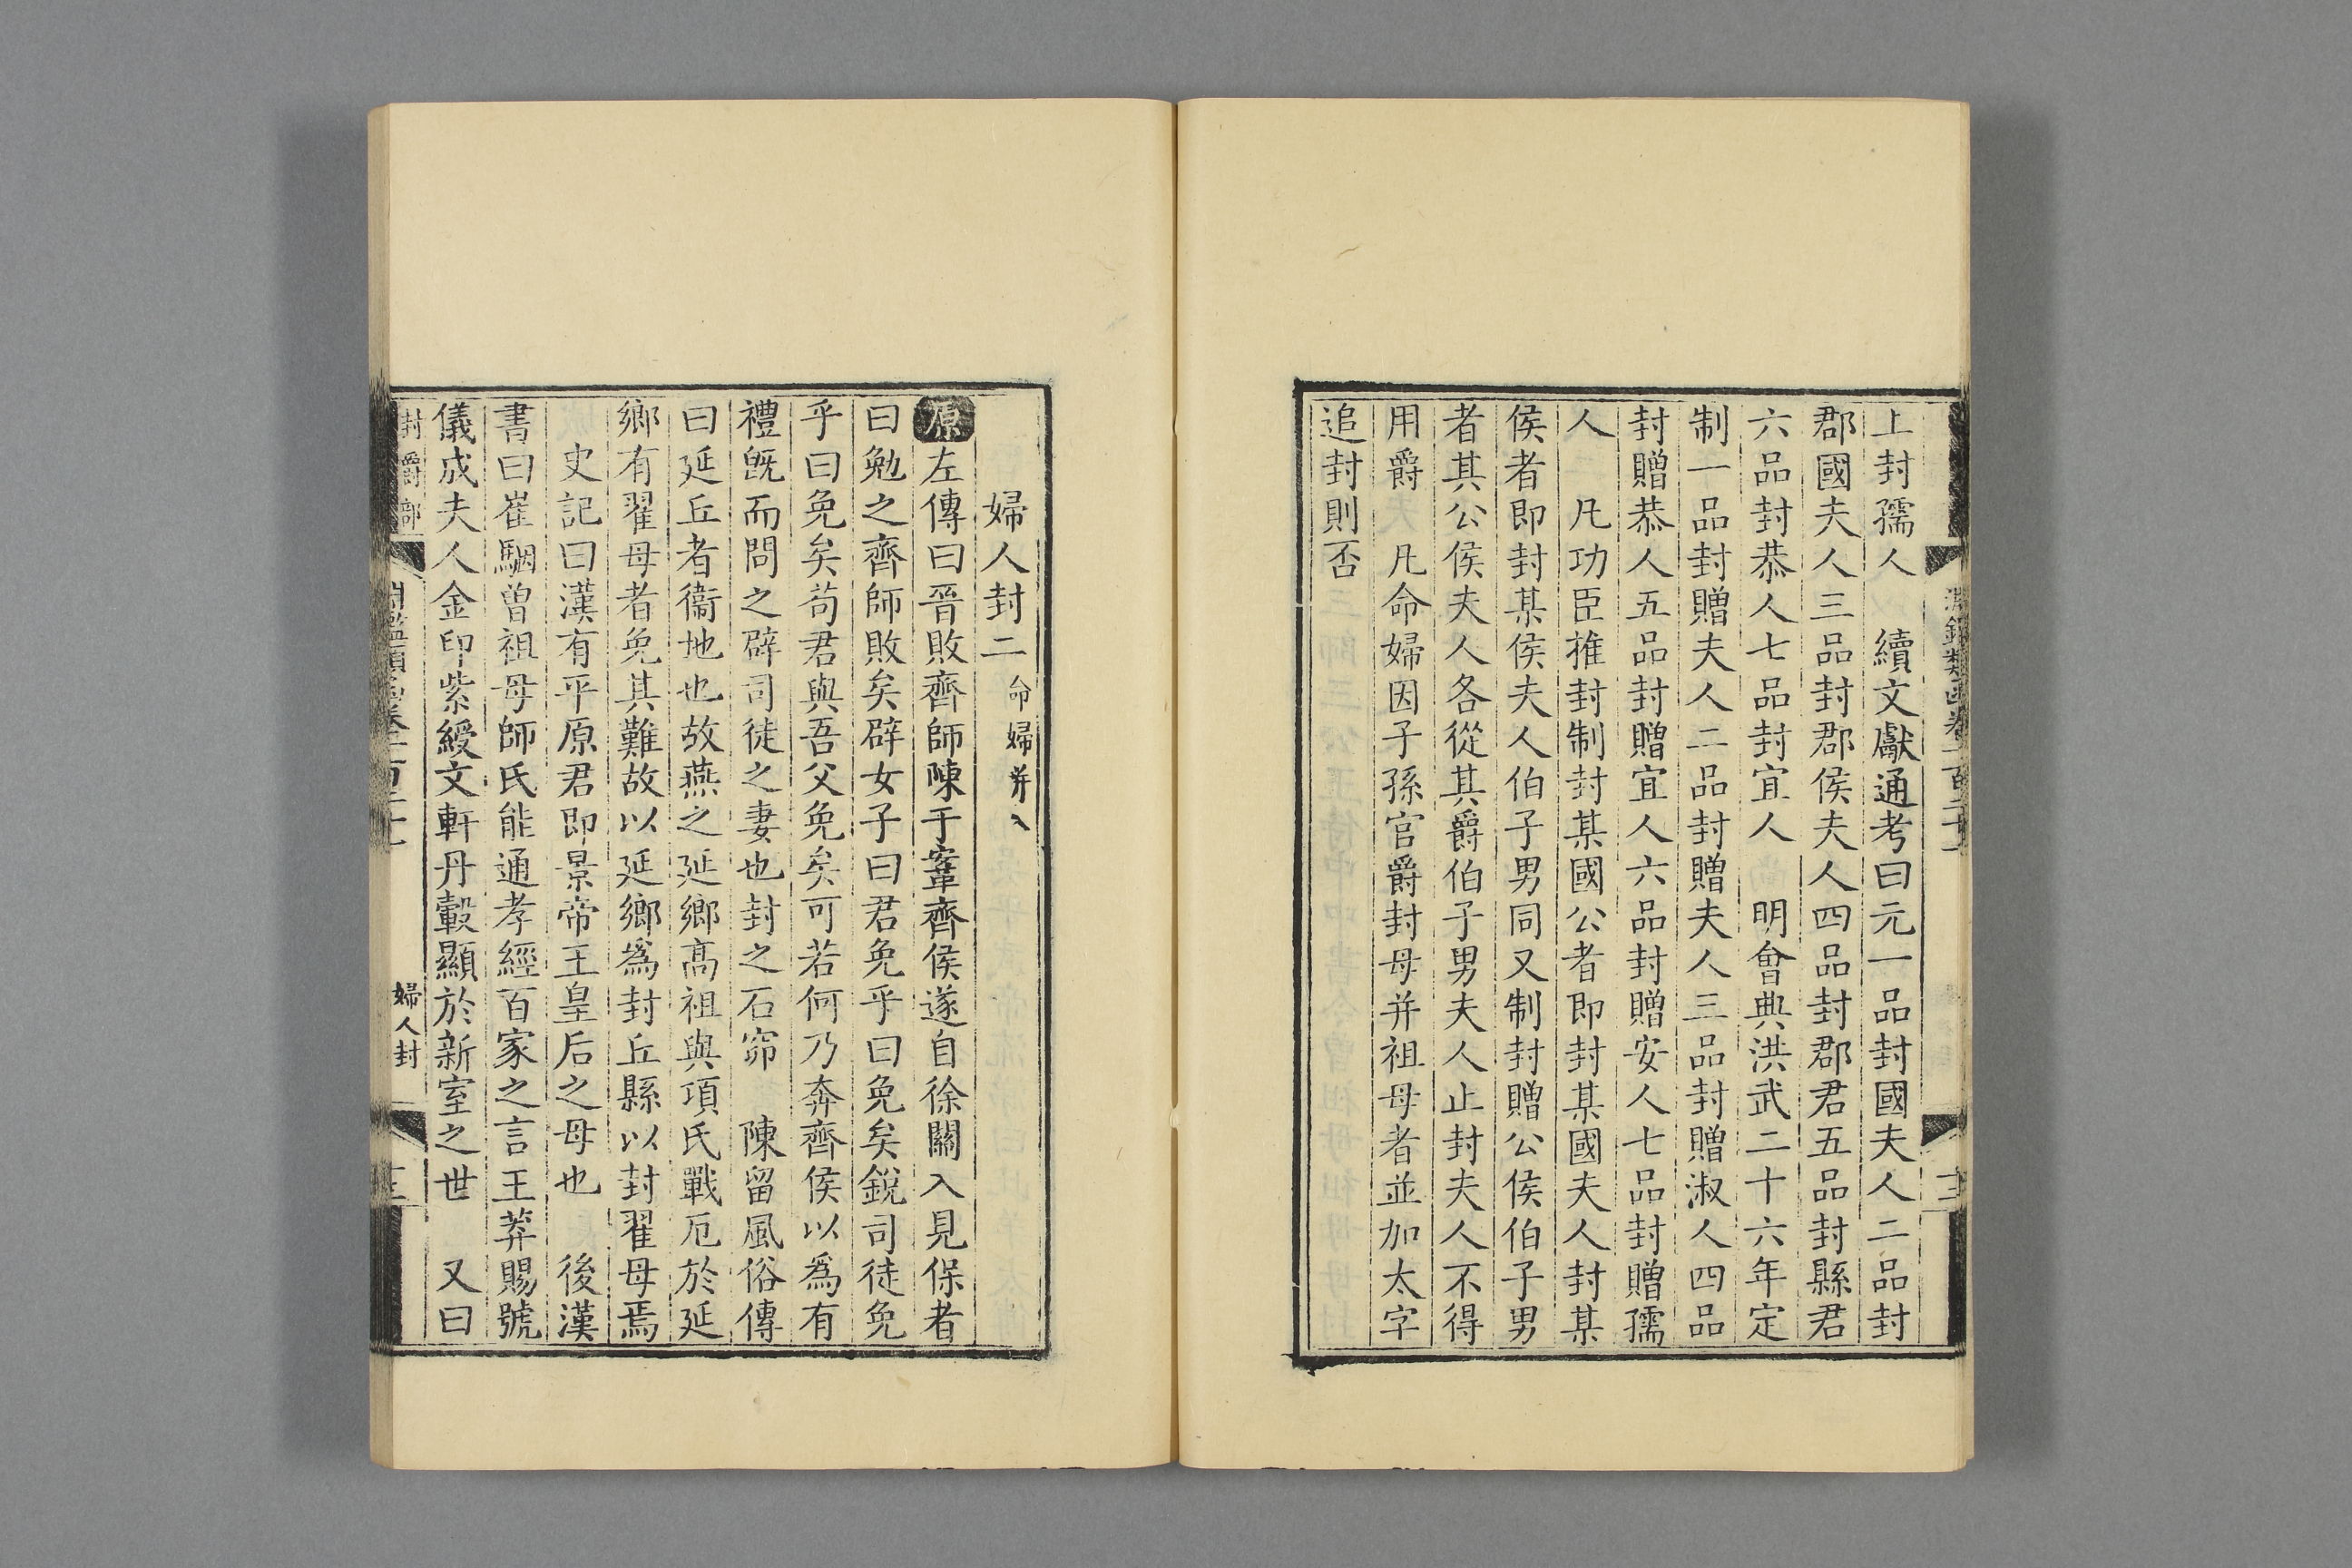 上封孺人　續文獻通考曰元一品封國夫人二品封
郡國夫人三品封郡侯夫人四品封郡君五品封縣君
六品封恭人七品封宜人　明會典洪武二十六年定
制一品封贈夫人二品封贈夫人三品封贈淑人四品
封贈恭人五品封贈宜人六品封贈安人七品封贈孺
人　凡功臣推封制封某國公者即封某國夫人封某
侯者即封某侯夫人伯子男同又制封贈公侯伯子男
者其公侯夫人各從其爵伯子男夫人止封夫人不得
用爵　凡命婦因子孫官爵封母并祖母者並加太字
追封則否
婦人封二 命婦并入
原左傳曰晉敗齊師陳于鞌齊侯遂自徐關入見保者
曰勉之齊師敗矣辟女子曰君免乎曰免矣銳司徒免
乎曰免矣苟君與吾父免矣可若何乃奔齊侯以爲有
禮既而問之辟司徒之妻也封之石窌　陳留風俗傳
曰延丘者衞地也故燕之延鄉高祖與項氏戰厄於延
鄉有翟母者免其難故以延鄉爲封丘縣以封翟母焉
史記曰漢有平原君即景帝王皇后之母也　後漢
書曰崔駰曾祖母師氏能通孝經百家之言王莽賜號
儀成夫人金印紫綬文軒丹轂顯於新室之世　又曰
封爵部
婦人封